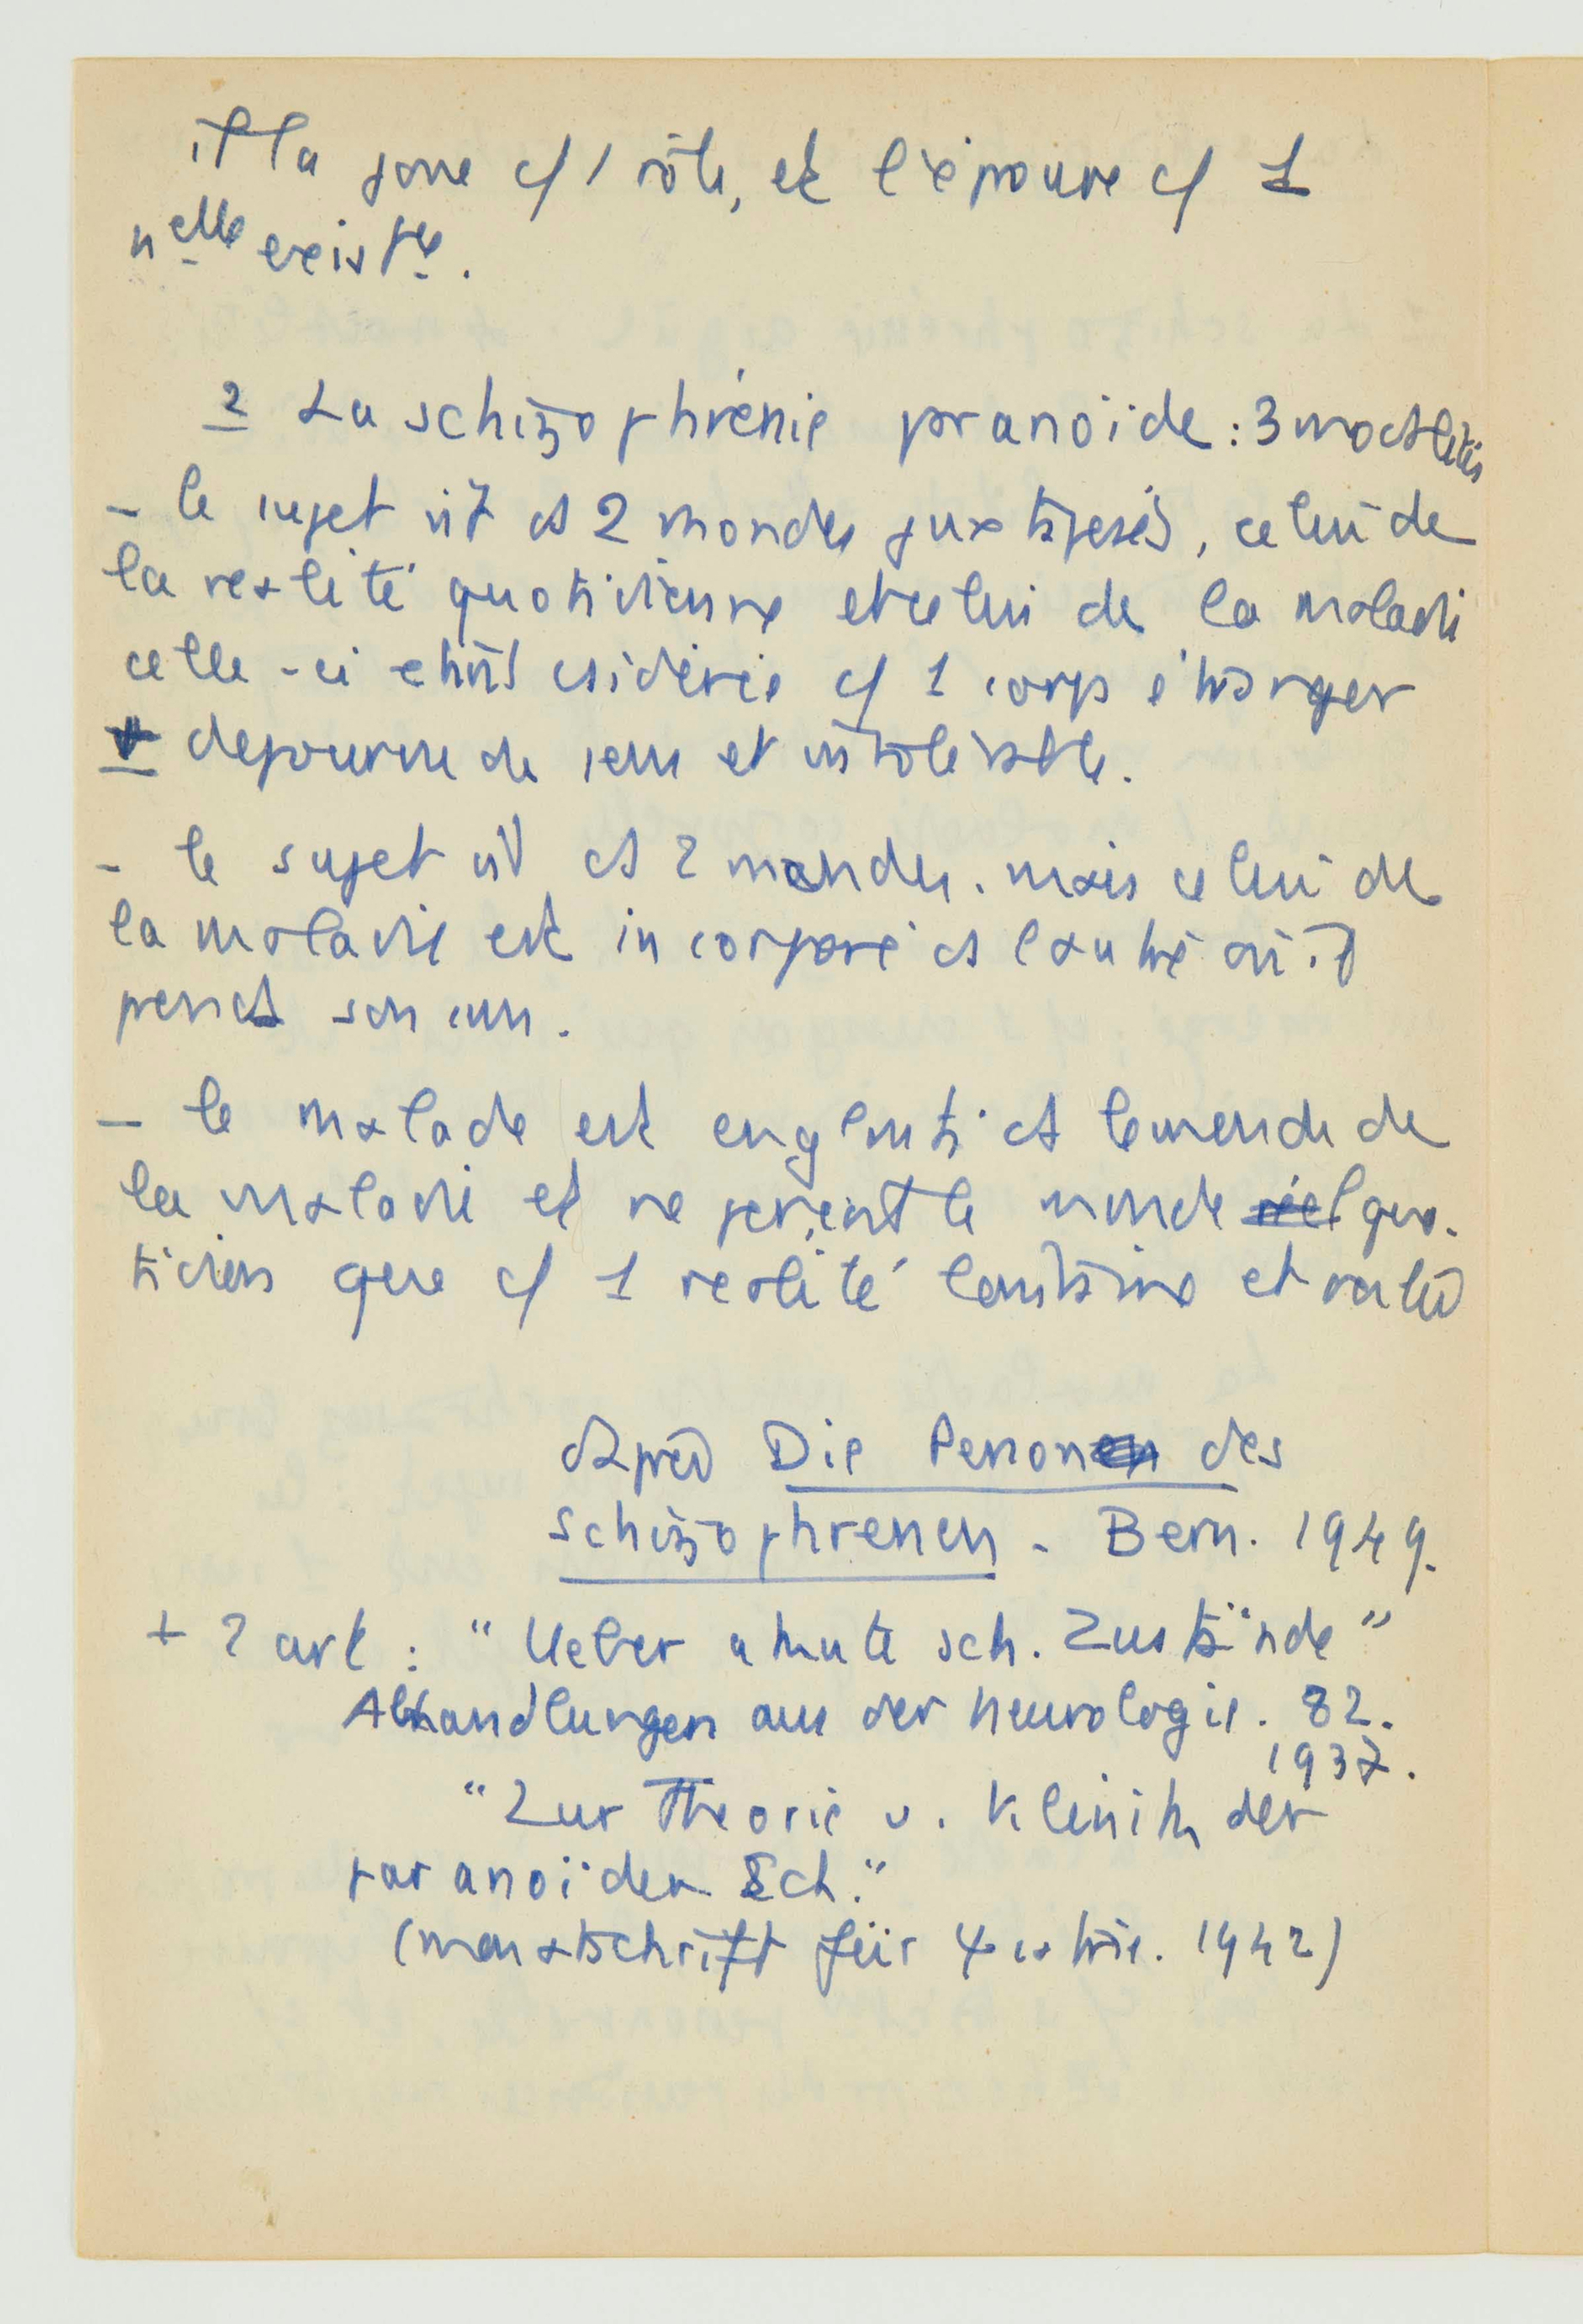 il la joue c/ 1 rôle, et l'éprouve c/ 1
nelle existce.
2 La schizophrénie paranoïde : 3 modalités
- le sujet vit ds 2 mondes juxtaposés, celui de
la réalité quotidienne et celui de la maladie
celle-ci étant csidérée c/ 1 corps étranger
dépourvu de sens et intolérable.
- le sujet vit ds 2 mondes. mais celui de
la maladie est incorporé ds l'autre où il
prend son sens.
- le malade est englouti ds le monde de
la maladie et ne perçoit le monde réel quo-
tidien que c/ 1 réalité lointaine et
d'après Die Person des
schizophrenen - Bern. 1949.
+ 2 art : " Ueber akute sch. Zustände "
Abhandlungen aus der Neurologie. 82.
1937.
" Zur Theorie u. Klinik der
paranoïden Sch."
(monatschrift für ψiatrie. 1942)